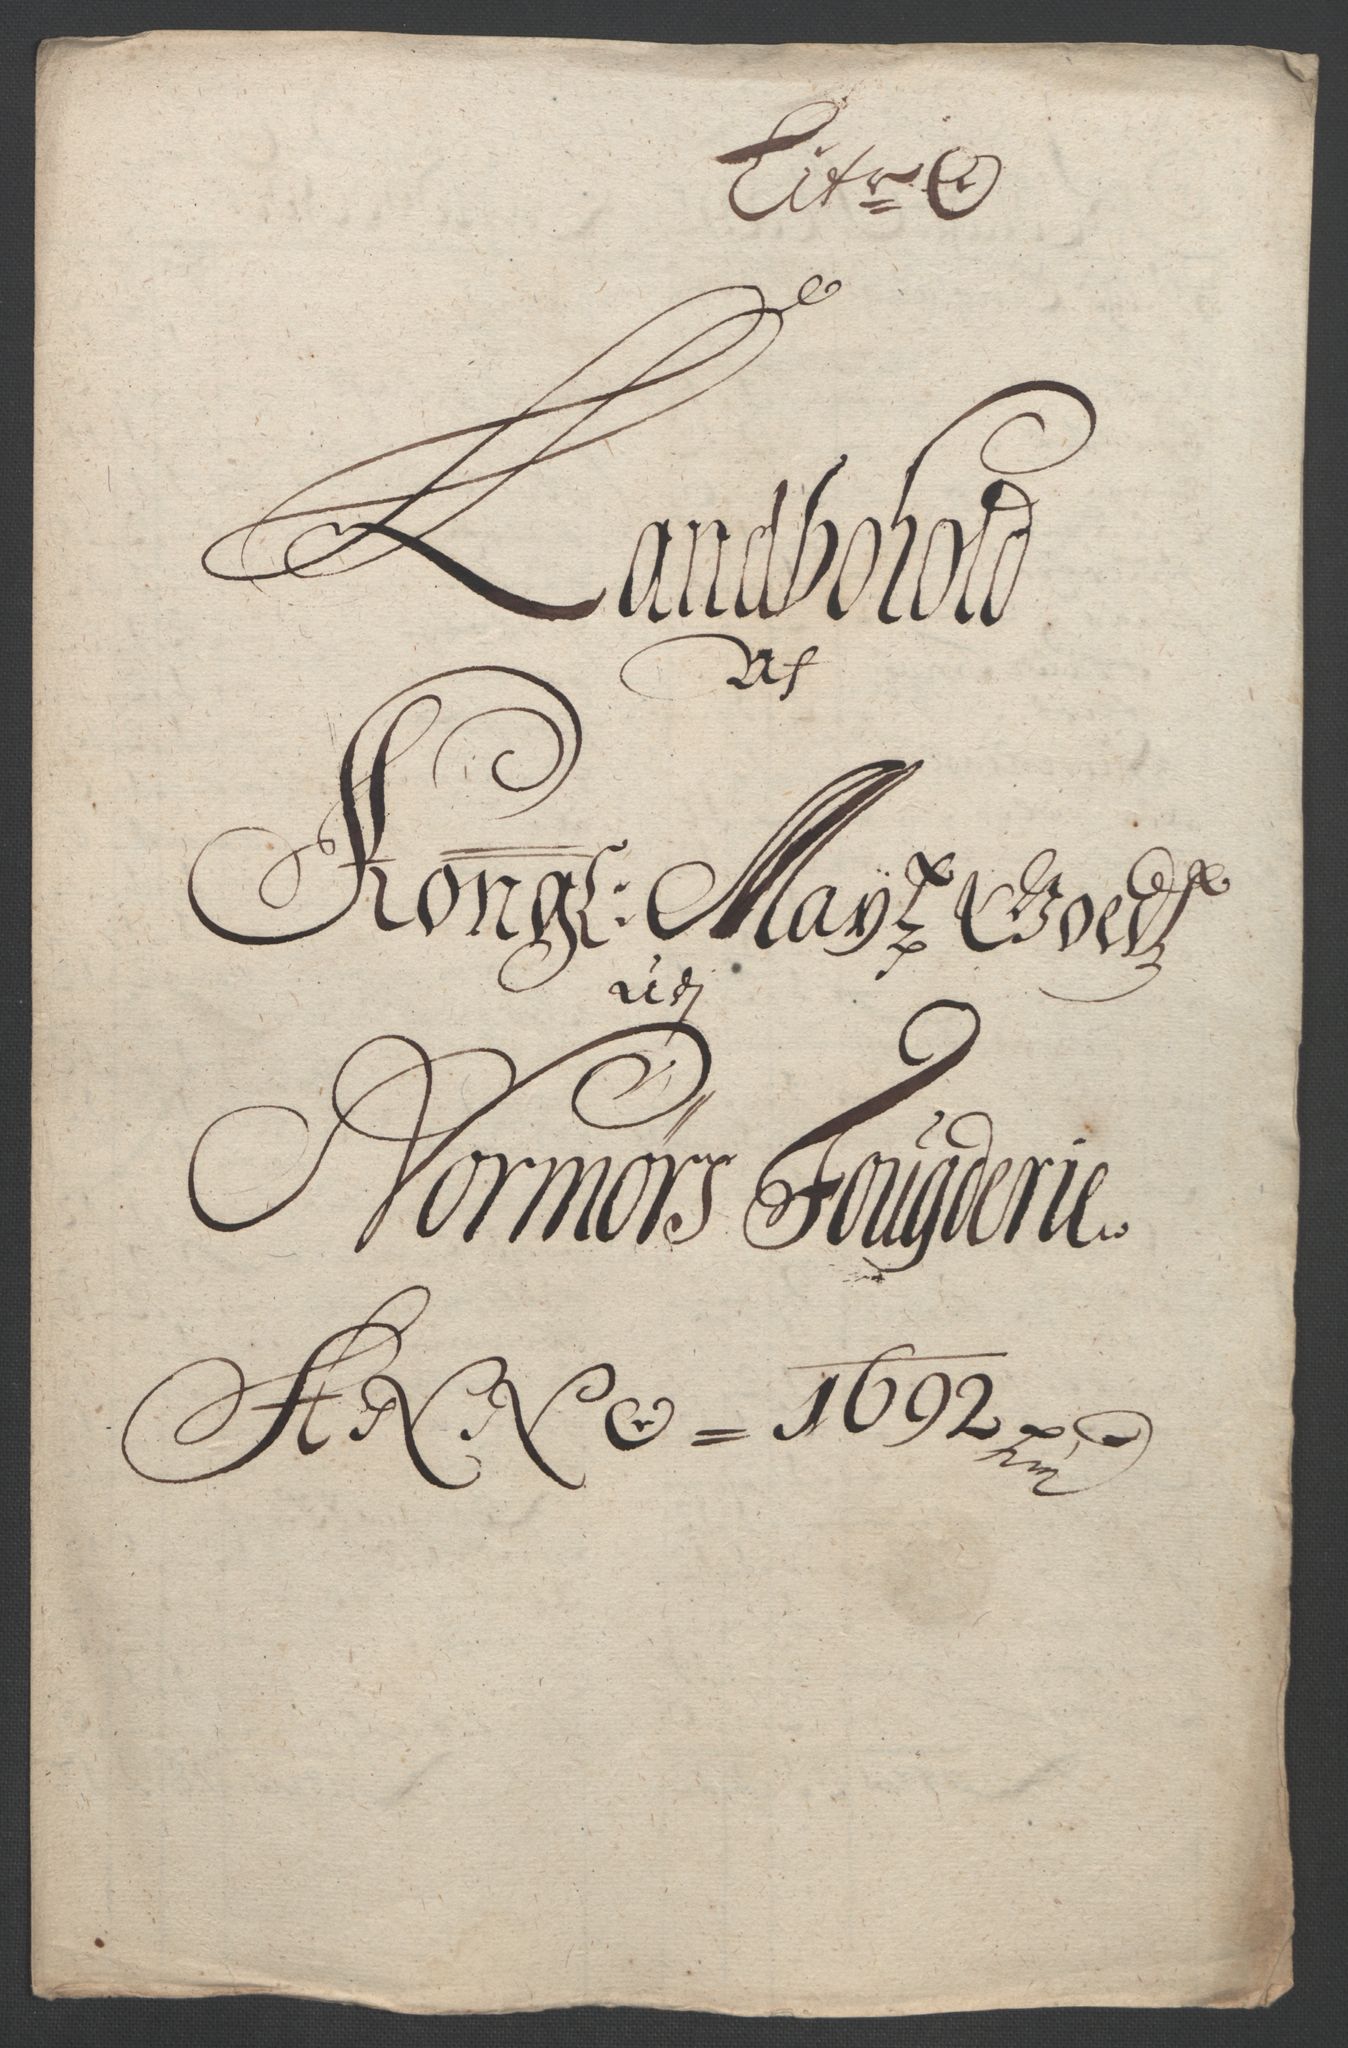 Litr: O
Landbohold
Af
Kongl: Mayt: Goedtz
udj
Normörs Fougderie
ANNO = 1692